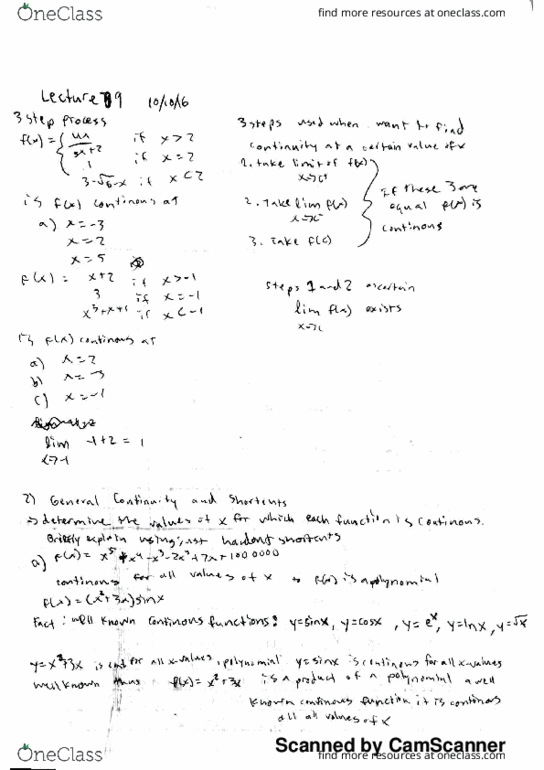 OneClass
find more resources at oneclass.com
Lecture 9 10/10/16
3 step process
f(x) = { 4x / 3x+2 if x>2
1 if x=2
3-√6-x if x<2
is f(x) continous at
a) x=-3
x=2
x=5
f(x) = x+2 if x>-1
3 if x=-1
x³+x+1 if x<-1
is f(x) continous at
a) x=2
b) x=-3
c) x=-1
lim -1+2=1
x→-1
3 steps used when want to find
continuity at a certain value of x
1. take limit of f(x)
x→c⁺
2. Take lim f(x)
x→c⁻
3. Take f(c)
if these 3 are
equal f(x) is
continous
steps 1 and 2 ascertain
lim f(x) exists
x→c
2) General Continuity and Shortcuts
→ determine the values of x for which each function is continous.
Briefly explain using handout shortcuts
a) f(x) = x⁵+x⁴-x³-2x²+7x+1000000
continous for all values of x → f(x) is a polynomial
f(x)=(x²+3x)sinx
Fact: well known continous functions: y=sinx, y=cosx, y=eˣ, y=lnx, y=√x
y=x²+3x is cont for all x-values, polynomial y=sinx is continous for all x-values
well known thus f(x)=x²+3x is a product of a polynomial a well
known continous function it is continous
all all values of x
Scanned by CamScanner
OneClass
find more resources at oneclass.com